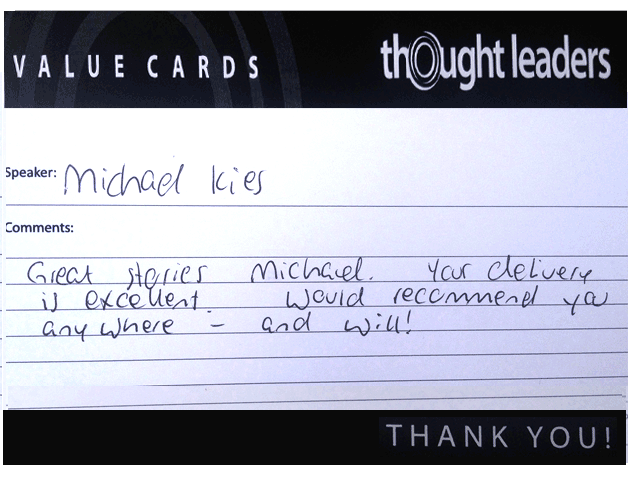 VALUE CARDS
thought leaders
Speaker: Michael Kies
Comments:
Great stories Michael. Your delivery
is excellent. Would recommend you
anywhere - and will!
THANK YOU!